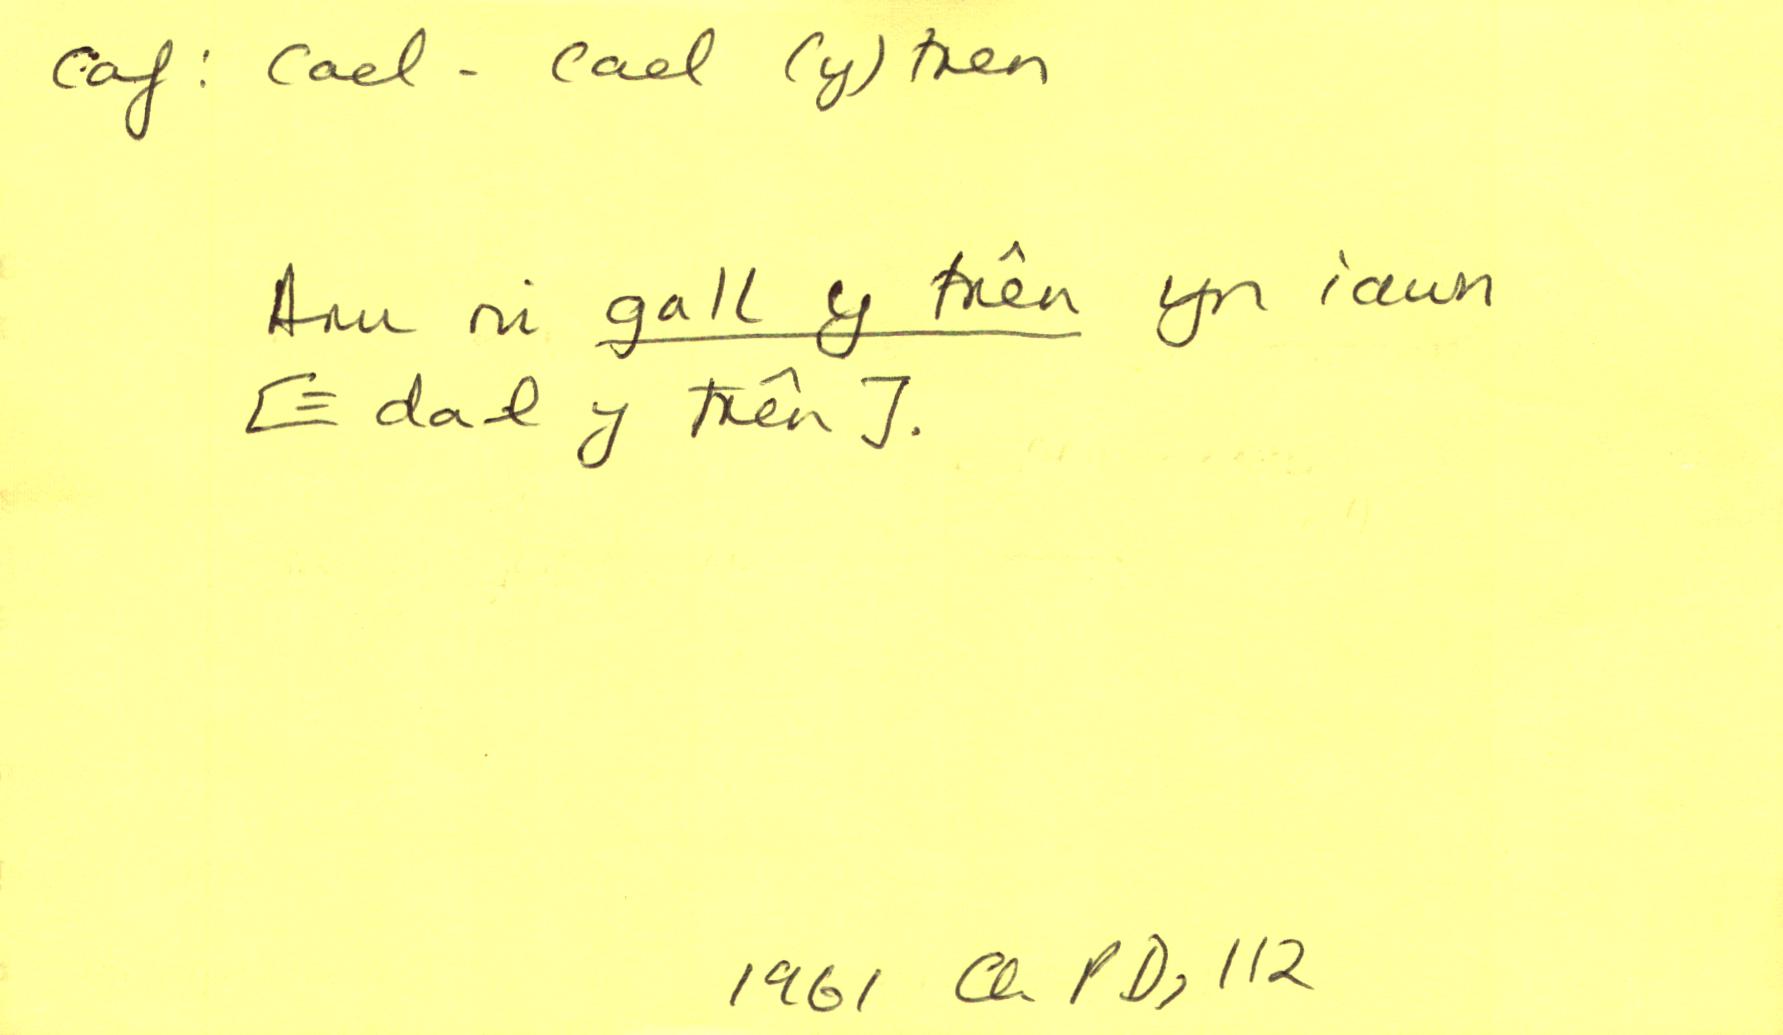 caf: cael - cael (y) tren
ni gall y trên yn iawn
[≡ dal y trên].
1961 PD, 112